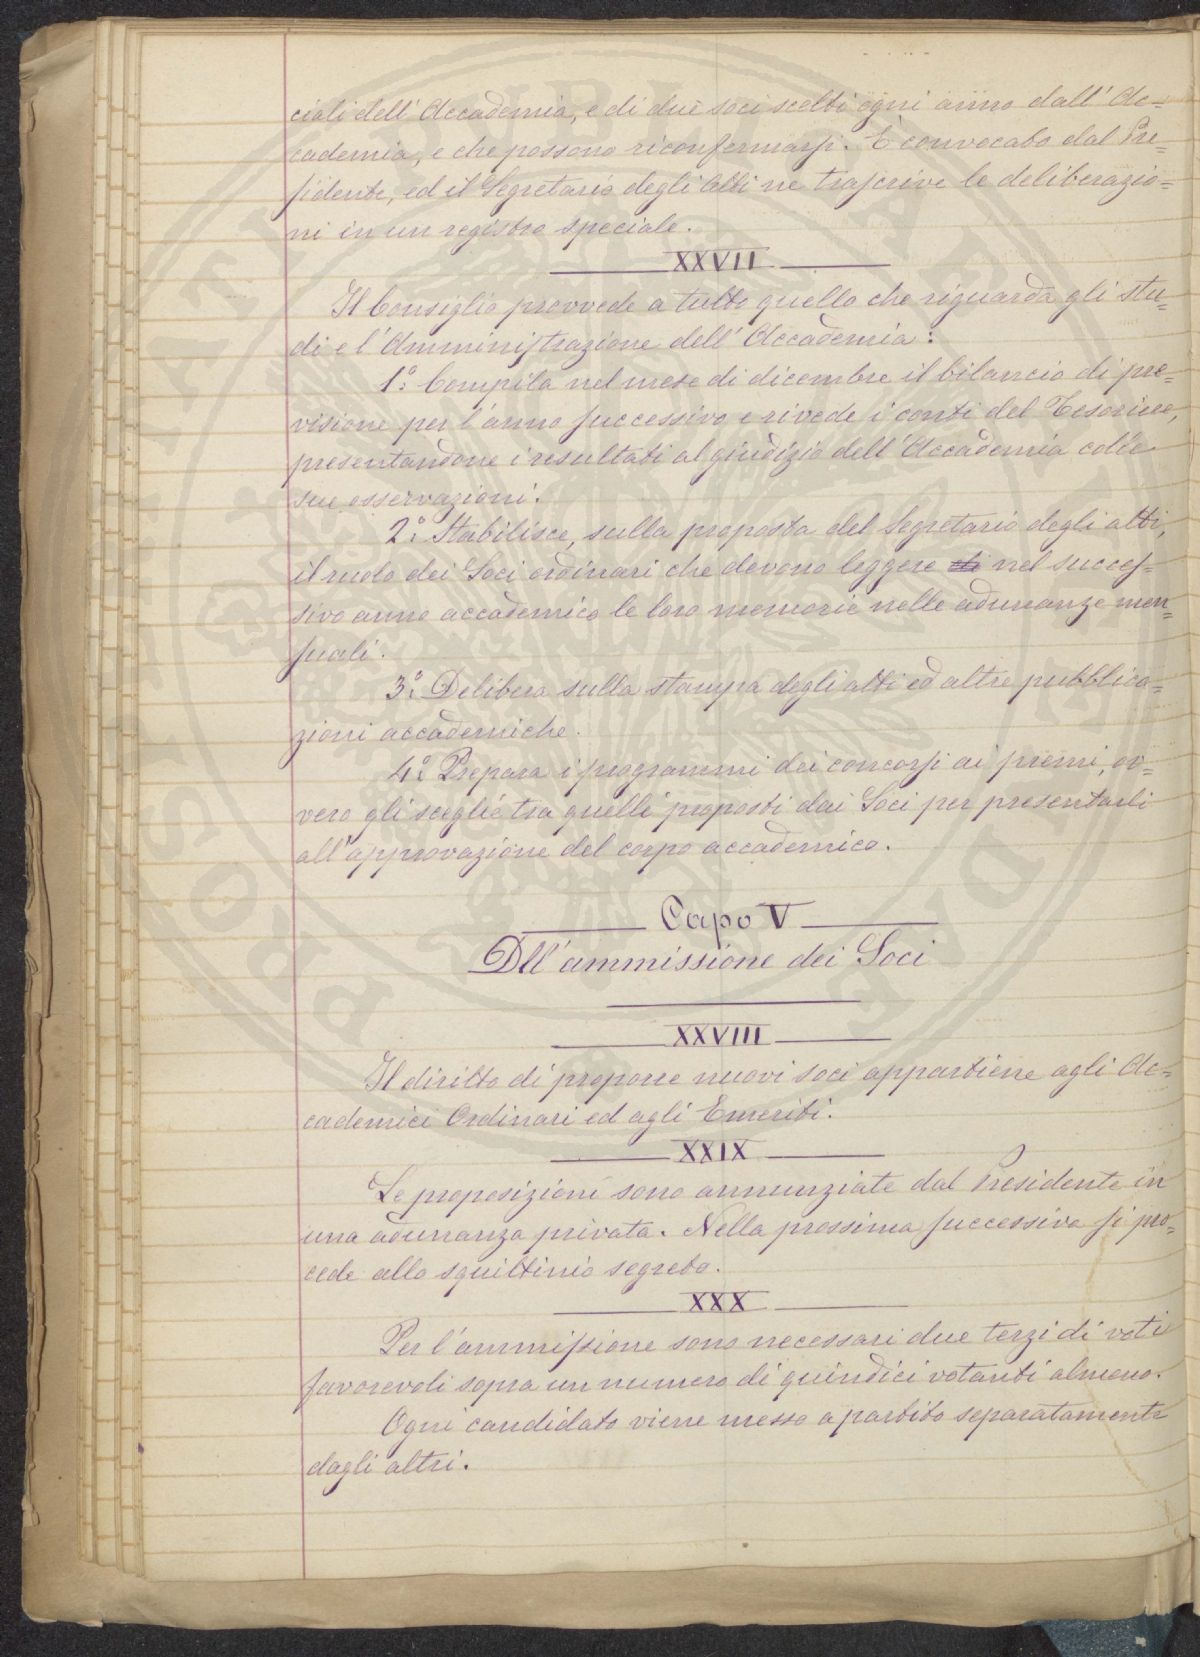 ciali dell'Accademia, e di due soci scelti ogni anno dall'Ac=
cademia, e che possono riconfermarsi. È convocato dal Pre=
sidente, ed il Segretario degli Atti ne trascrive le deliberazio=
ni in un registro speciale.
XXVII
Il Consiglio provvede a tutto quello che riguarda gli stu=
di e l'Amministrazione dell'Accademia:
1.° Compila nel mese di dicembre il bilancio di pre=
visione per l'anno successivo e rivede i conti del Tesoriere,
presentandone i resultati al giudizio dell'Accademia colle
sue osservazioni.
2.° Stabilisce, sulla proposta del Segretario degli atti,
il ruolo dei Soci ordinari che devono leggere di nel succes=
sivo anno accademico le loro memorie nelle adunanze men=
suali.
3.° Delibera sulla stampa degli atti ed altre pubblica=
zioni accademiche.
4.° Prepara i programmi dei concorsi ai premi, ov=
vero gli sceglie tra quelli proposti dai Soci per presentarli
all'approvazione del corpo accademico.
Capo V
Dll'ammissione dei Soci
XXVIII
Il diritto di proporre nuovi soci appartiene agli Ac=
cademici Ordinari ed agli Emeriti.
XXIX
Le proposizioni sono annunziate dal Presidente in
una adunanza privata. Nella prossima successiva si pro=
cede allo squittinio segreto.
XXX
Per l'ammissione sono necessari due terzi di voti
favorevoli sopra un numero di quindici votanti almeno.
Ogni candidato viene messo a partito separatamente
dagli altri.